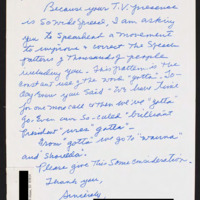 Because your T.V. presence
is so wide spread, I am asking
you to spearhead a movement
to improve & correct the speech
pattern of thousands of people
including you. This pattern is the
constant use of the word "gotta". To-
day I knew you said - "We have time
for one more call when we've "gotta"
go. Even our so-called "brilliant
President "uses gotta" -
from "gotta" we go to "wanna"
and "shoulda".
Please give this some consideration.
Thank you,
Sincerely,